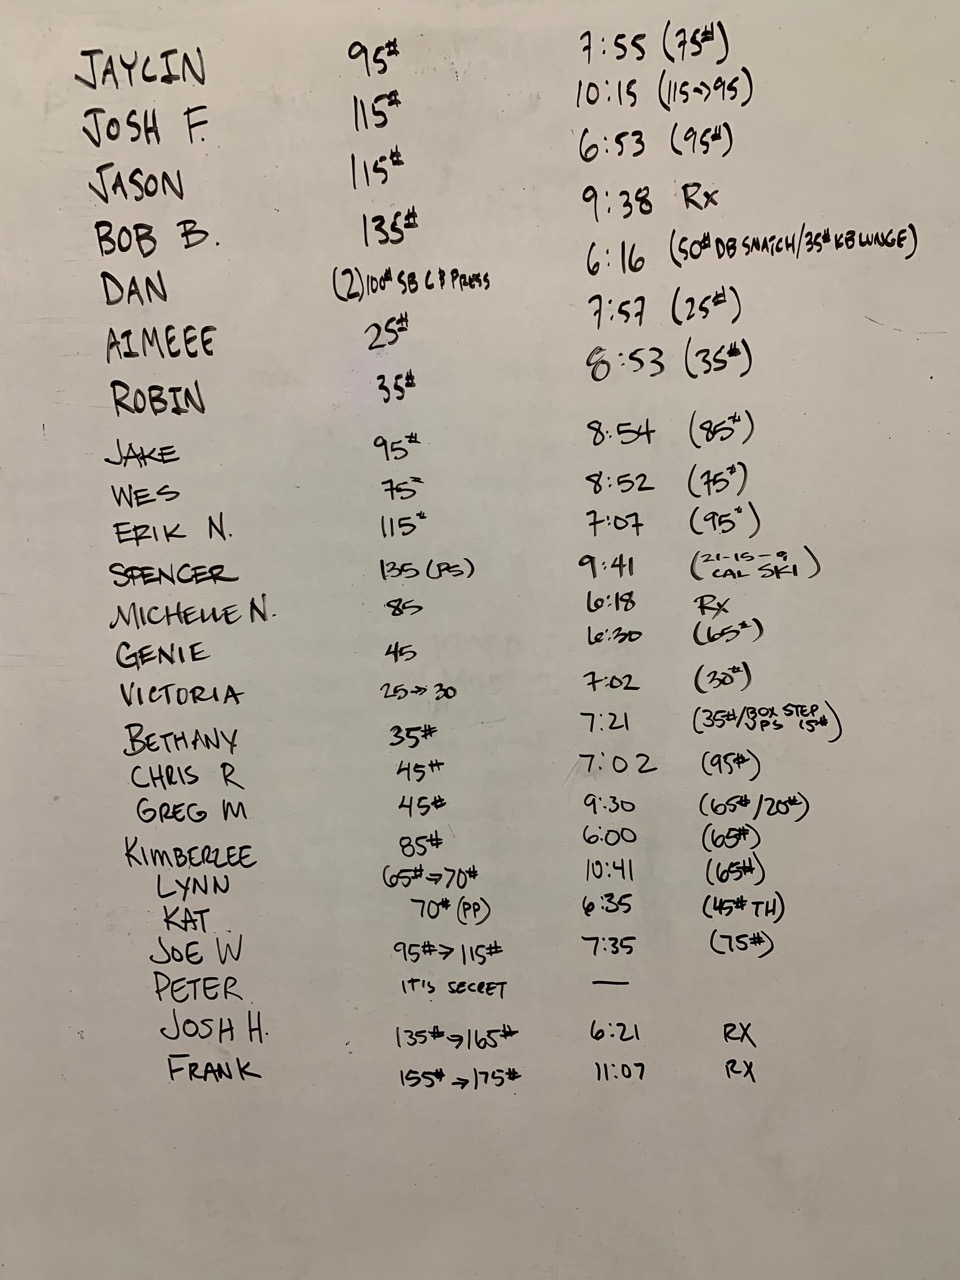 JAYLIN 95# 7:55 (75#)
JOSH F. 115# 10:15 (115→95)
JASON 115# 6:53 (95#)
BOB B. 135# 9:38 Rx
DAN (2) 100# SB C & PRESS 6:16 (50# DB SNATCH/35# KB LUNGE)
AIMEEE 25# 7:57 (25#)
ROBIN 35# 8:53 (35#)
JAKE 95# 8:54 (85#)
WES 75# 8:52 (75#)
ERIK N. 115# 7:07 (95#)
SPENCER 135 (PS) 9:41 (21-15-9 CAL SKI)
MICHELLE N. 85 6:18 Rx
GENIE 45 6:30 (65#)
VICTORIA 25→30 7:02 (30#)
BETHANY 35# 7:21 (35#/BOX STEP UPS 15#)
CHRIS R 45# 7:02 (95#)
GREG M 45# 9:30 (65#/20#)
KIMBERLEE 85# 6:00 (65#)
LYNN 65#→70# 10:41 (65#)
KAT 70# (PP) 6:35 (45# TH)
JOE W 95#→115# 7:35 (75#)
PETER IT'S SECRET —
JOSH H. 135#→165# 6:21 RX
FRANK 155#→175# 11:07 RX